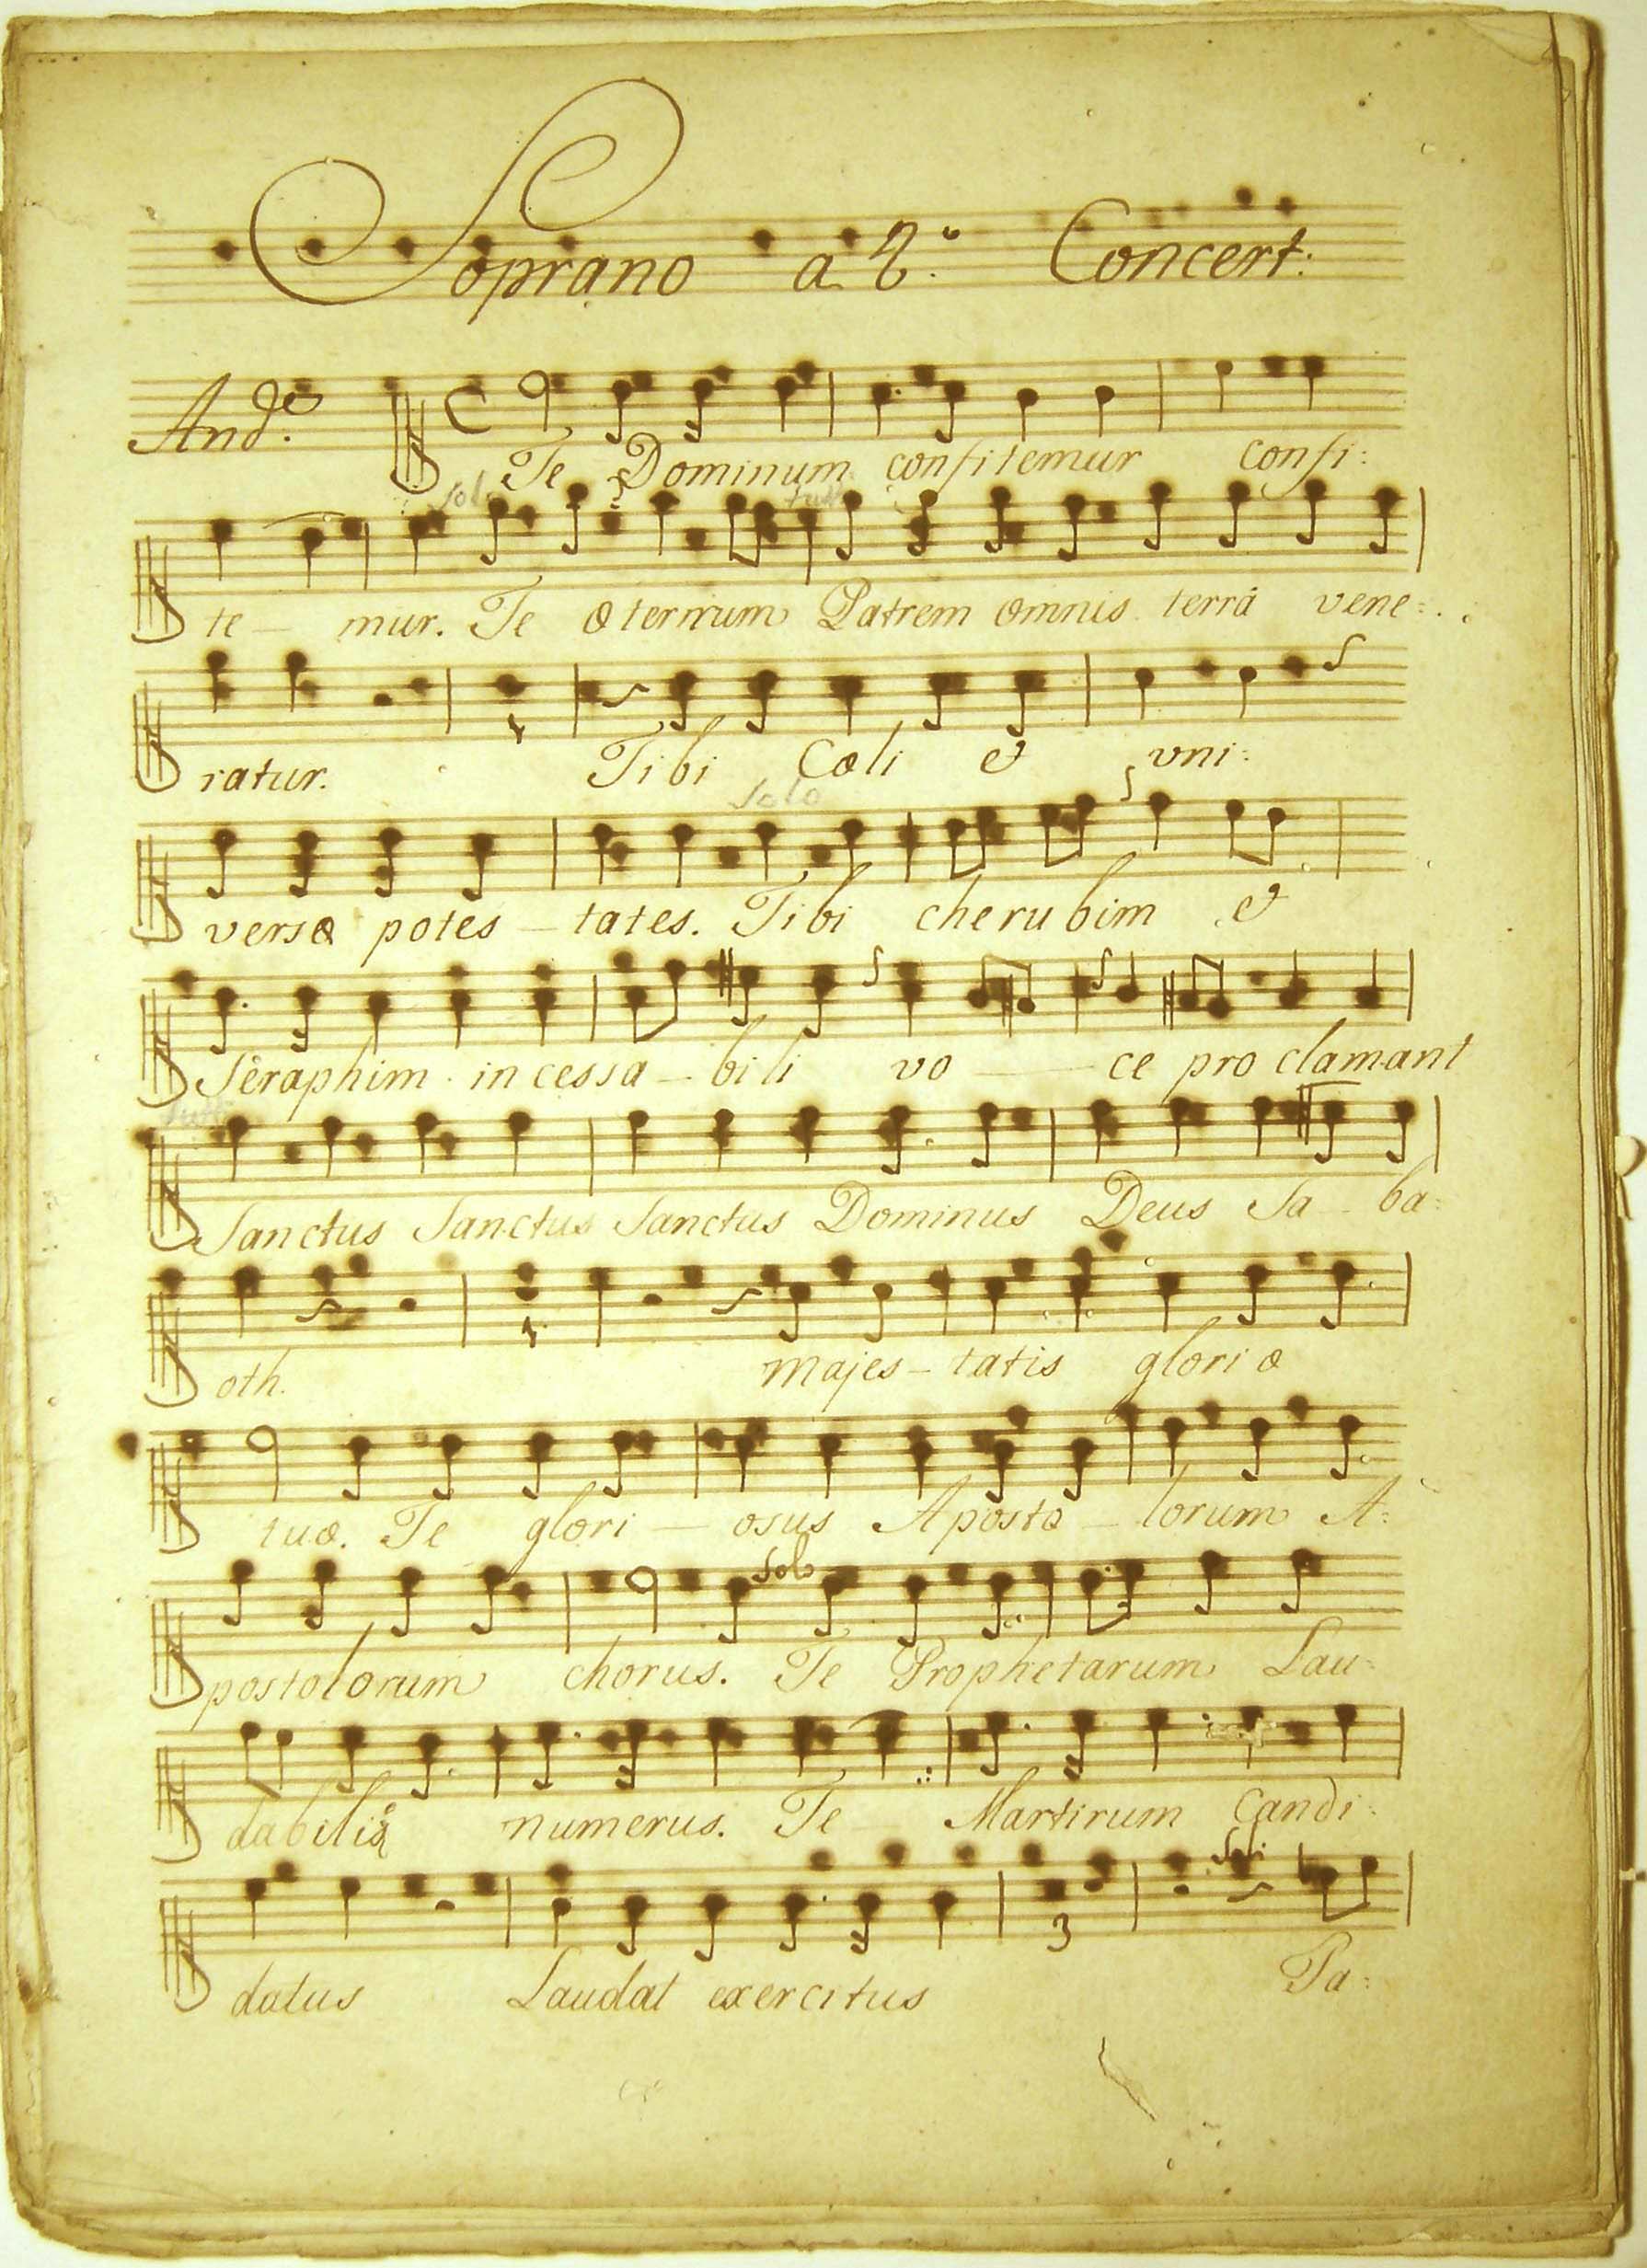 Soprano a 2.º Concert:
And.e
Te Dominum confitemur confi:
Solo tutti
te - mur. Te æternum Patrem omnis terrá vene:
ratur. Tibi Cœli et vni:
Solo
versæ potes - tates. Tibi cherubim et
Seraphim incessa - bili vo - ce proclamant
tutti
Sanctus Sanctus Sanctus Dominus Deus Sa - ba:
oth. majes - tatis gloriæ
tuæ. Te glori - osus Aposto - lorum A:
Solo
postolorum chorus. Te Prophetarum Lau:
dabilis numerus. Te Martirum Candi:
Soli
datus Laudat exercitus Pa:
3